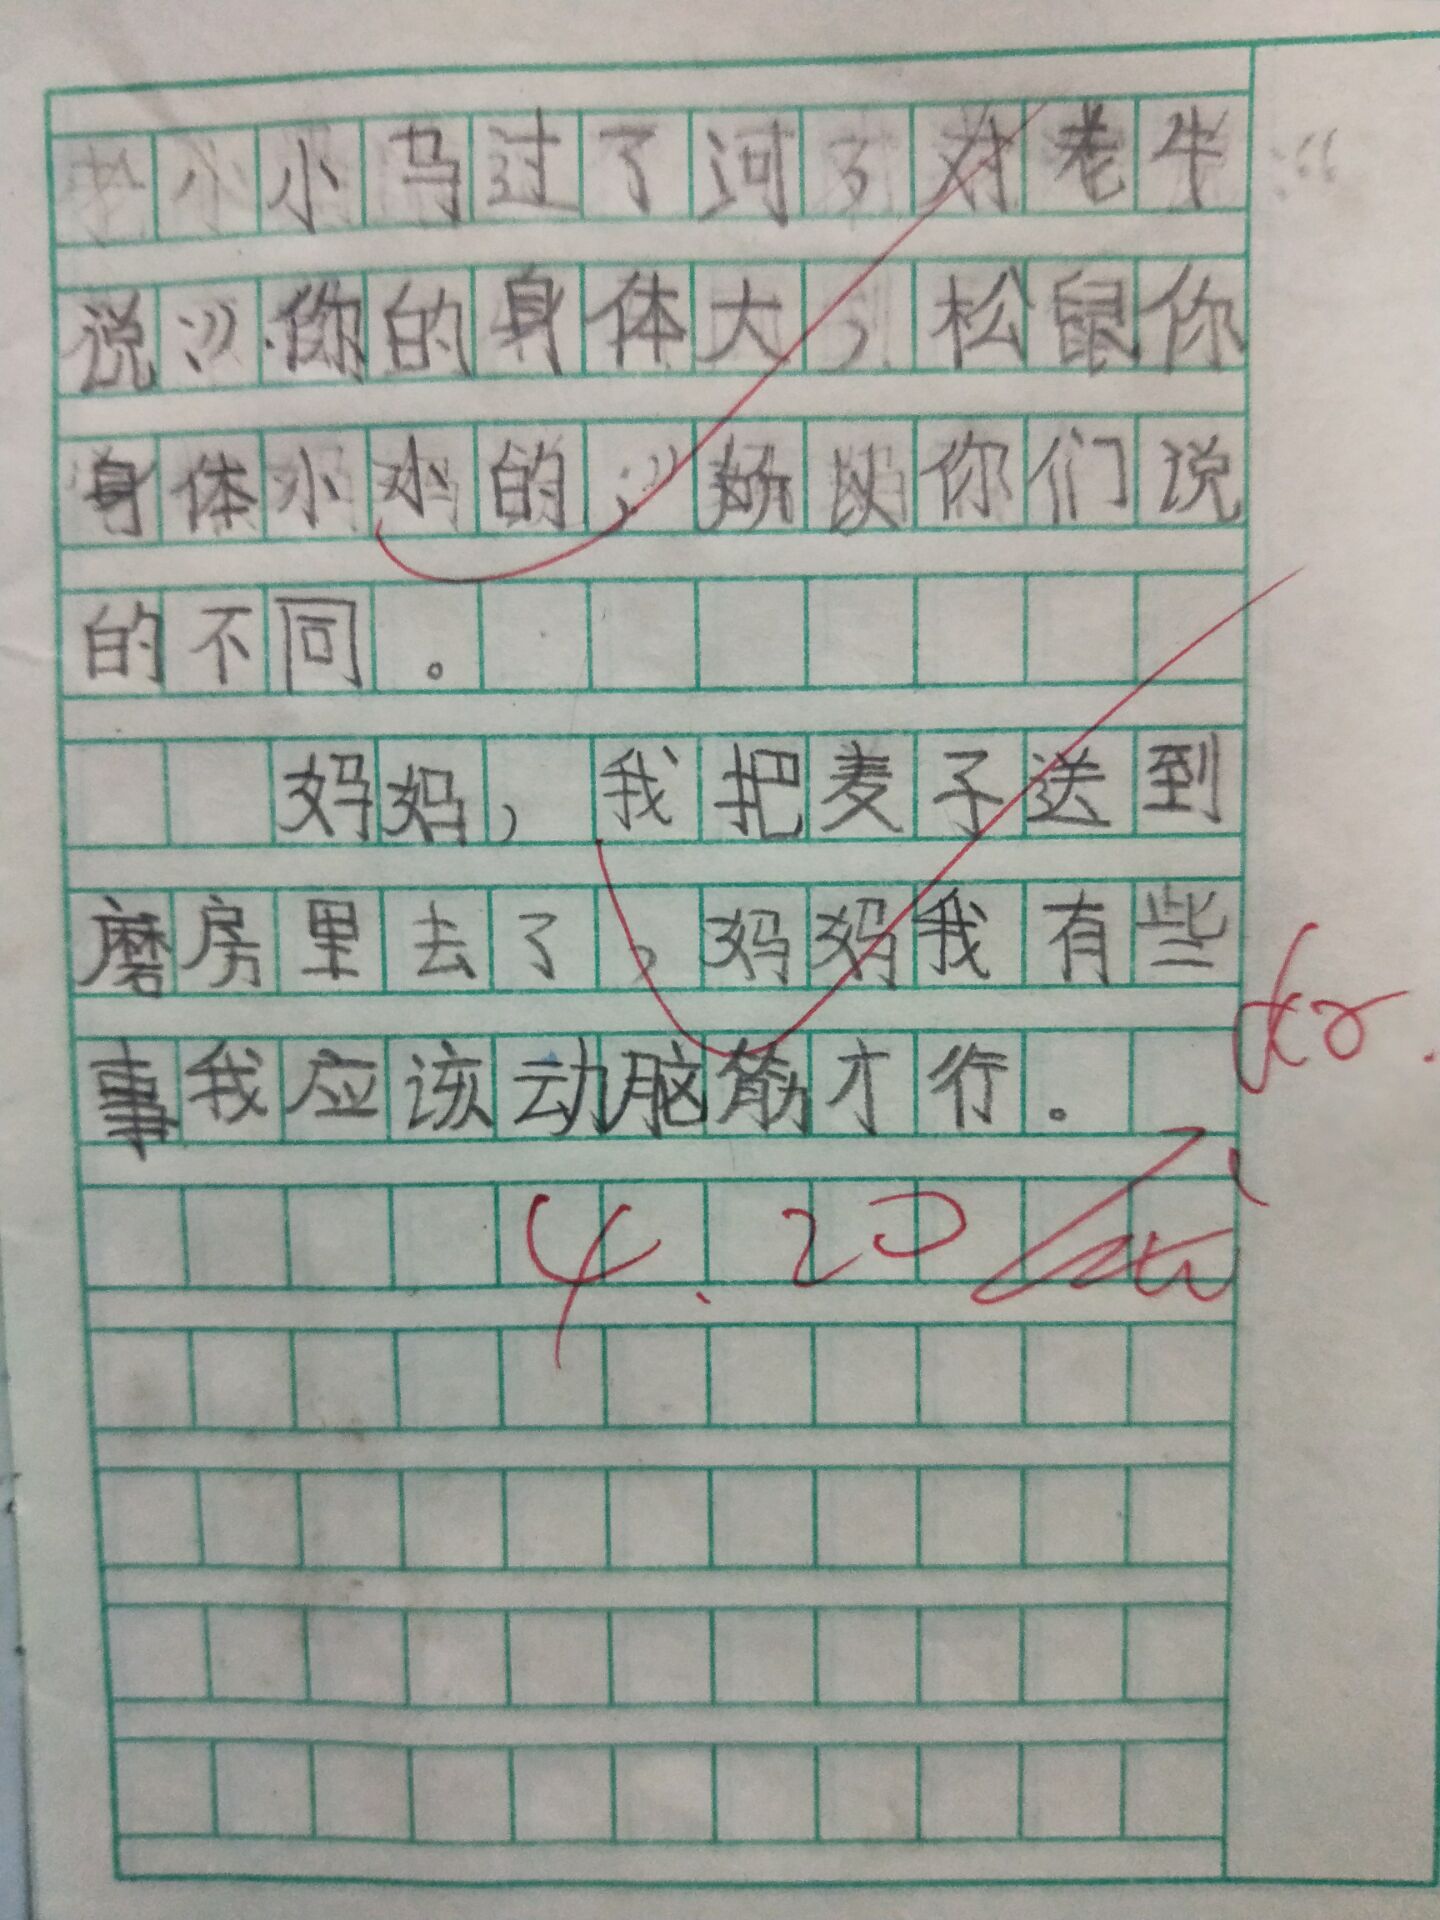 小马过了河，对老牛
说：“你的身体大，松鼠你
身体小小的，”所以你们说
的不同。
妈妈，我把麦子送到
磨房里去了，妈妈我有些
事我应该动脑筋才行。
4.20